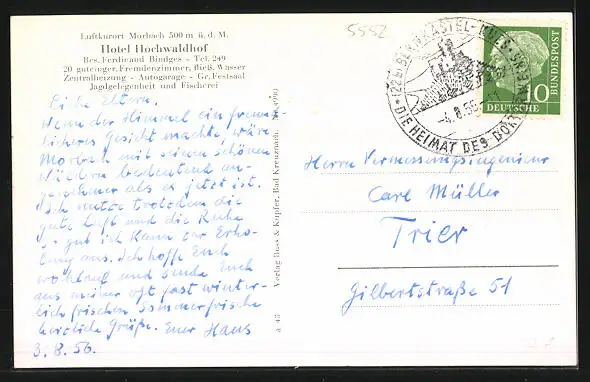 Luftkurort Morbach 500 m ü. d. M.
Hotel Hochwaldhof
Bes. Ferdinand Bindges - Tel. 249
20 guteinger. Fremdenzimmer, fließ. Wasser
Zentralheizung - Autogarage - Gr. Festsaal
Jagdgelegenheit und Fischerei
Eltern.
Wenn der Himmel ein freund-
licheres Gesicht machte, wäre
Morbach mit seinen schönen
Wäldern bedeutend an-
genehmer als es jetzt ist.
Ich nutze trotzdem die
gute Luft und die Ruhe
gut ich kann zur Erho-
lung aus. Ich hoffe Euch
wohlauf und sende Euch
aus meiner oft fast winter-
lich frischen Sommerfrische
herzliche Grüße. Euer Hans
3.8.56.
Verlag Buss & Kupfer, Bad Kreuznach.
a 43
5552
(22b) BERNKASTEL-KUES
-4.8.56
DIE HEIMAT DES DOKTOR
10
DEUTSCHE
BUNDESPOST
Herrn Vermessungsingenieur
Carl Müller
Trier
Gilbertstraße 51